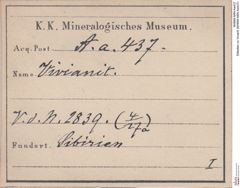 K. K. Mineralogisches Museum.
Acq. Post A. a. 437.
Name Vivianit.
V. d. N. 2839.
Fundort. Sibirien
I